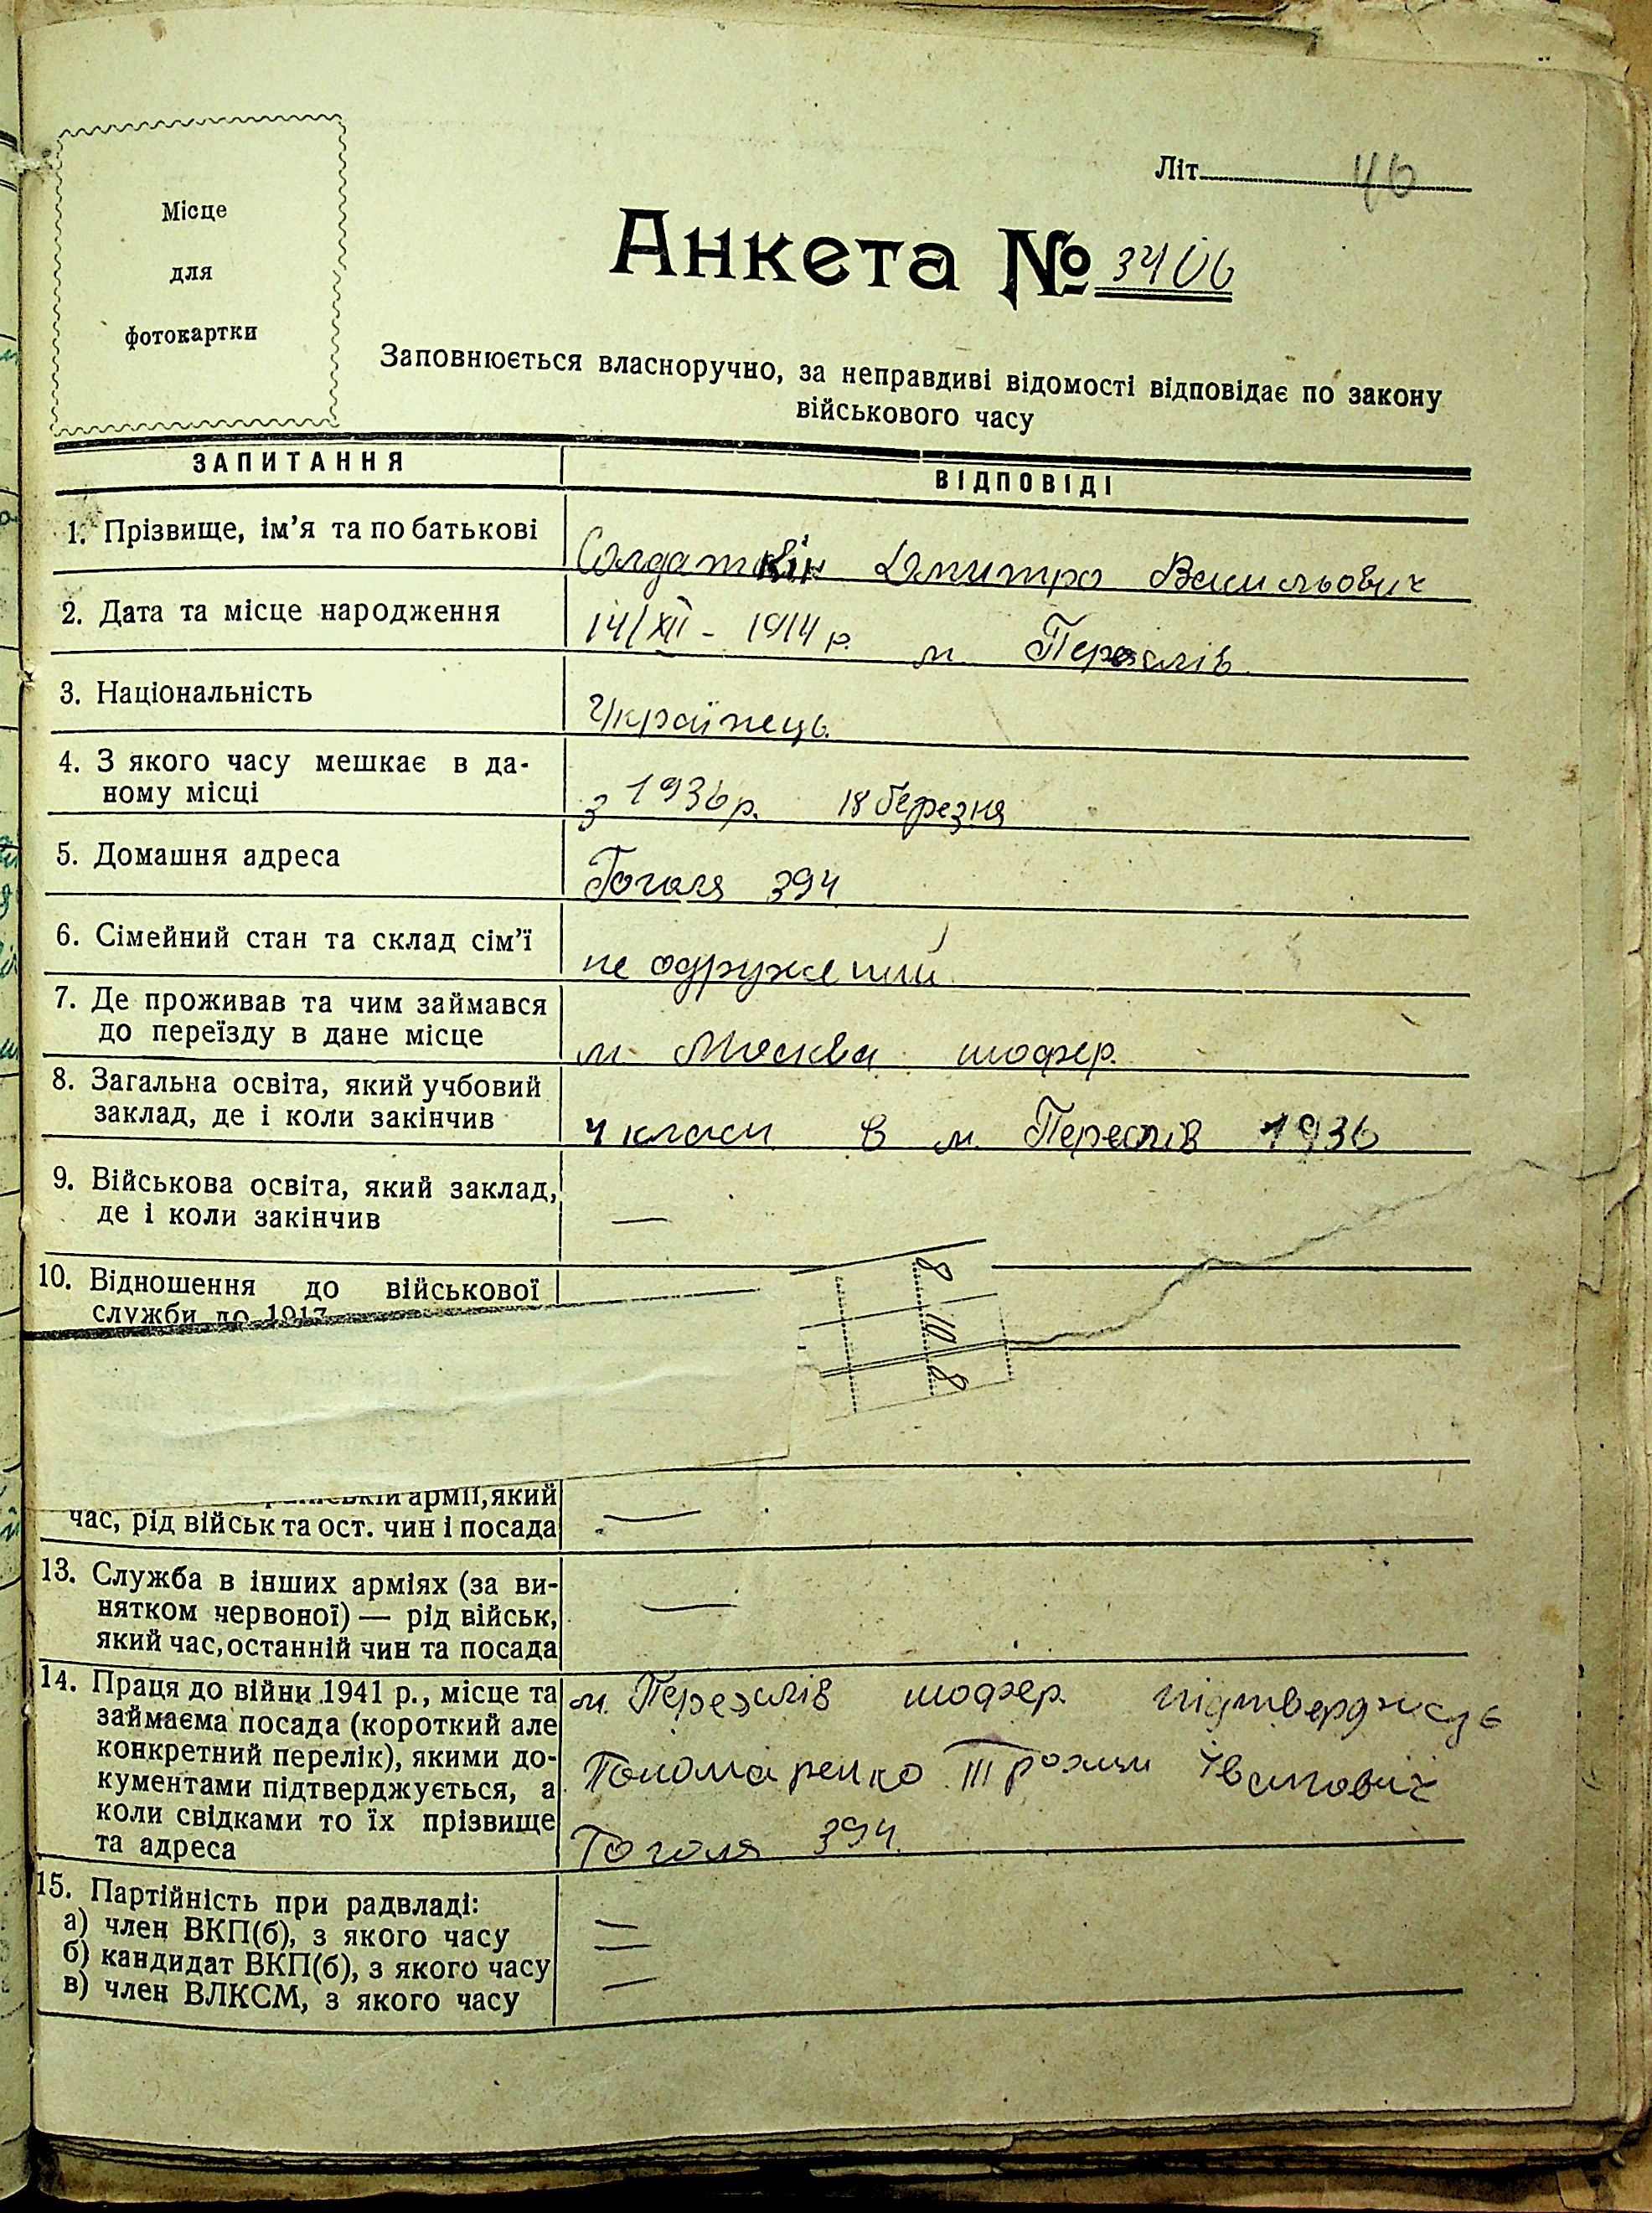 Літ. 46
Місце
для
фотокартки
Анкета № 3406
Заповнюється власноручно, за неправдиві відомості відповідає по закону
військового часу
ЗАПИТАННЯ ВІДПОВІДІ
1. Прізвище, ім’я та по батькові Солдаткін Дмитро Васильович
2. Дата та місце народження 14/XII - 1914 р. м. Переяслів
3. Національність Українець
4. З якого часу мешкає в да-
ному місці з 1936 р. 18 березня
5. Домашня адреса Гоголя 394
6. Сімейний стан та склад сім’ї не одружений
7. Де проживав та чим займався
до переїзду в дане місце м. Москва шофер.
8. Загальна освіта, який учбовий
заклад, де і коли закінчив 4 класи в м. Переслів 1936
9. Військова освіта, який заклад,
де і коли закінчив —
10. Відношення до військової
служби до 1917
8
10
8
армії, який
час, рід військ та ост. чин і посада —
13. Служба в інших арміях (за ви-
нятком червоної) — рід військ, —
який час, останній чин та посада
14. Праця до війни 1941 р., місце та м. Переяслів шофер. підтверджує
займаєма посада (короткий але
конкретний перелік), якими до- Пономаренко Трохим Іванович
кументами підтверджується, а
коли свідками то їх прізвище
та адреса Гоголя 394.
15. Партійність при радвладі:
а) член ВКП(б), з якого часу —
б) кандидат ВКП(б), з якого часу —
в) член ВЛКСМ, з якого часу —